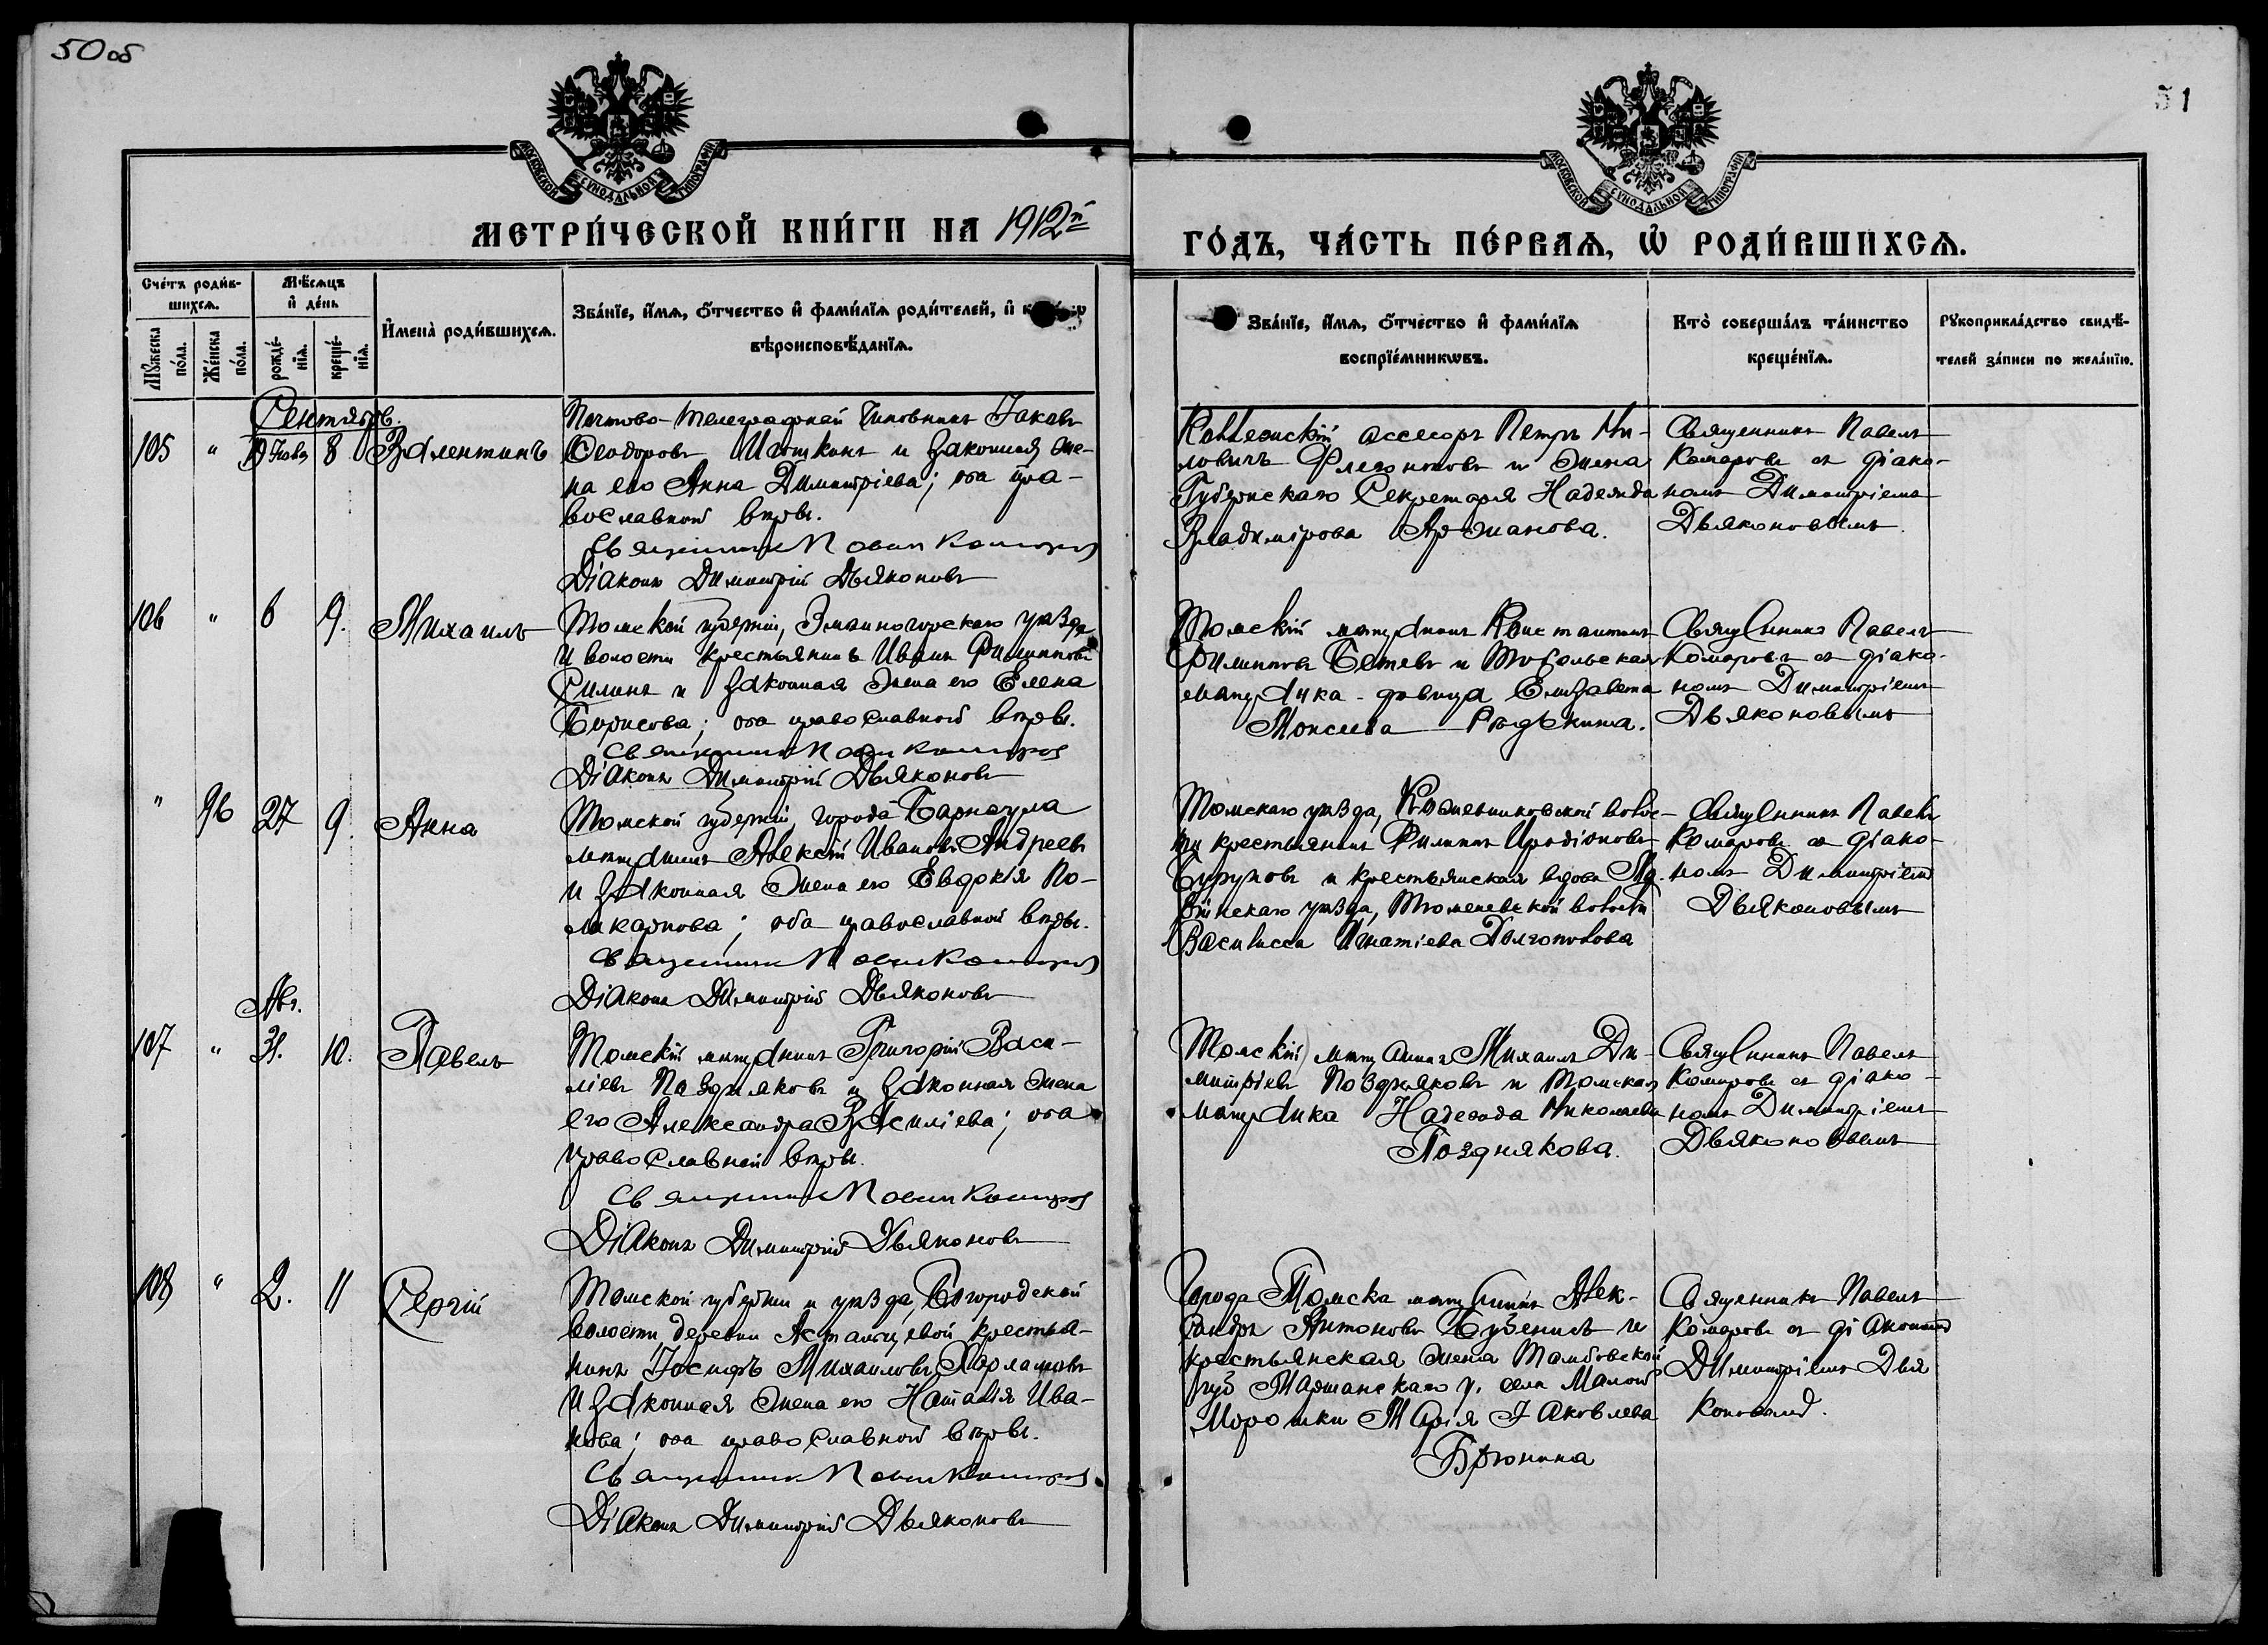 50 об
51
МОСКОВСКОЙ СѴНОДАЛЬНОЙ ТИПОГРАФІИ
МОСКОВСКОЙ СѴНОДАЛЬНОЙ ТИПОГРАФІИ
МЕТРИ́ЧЕСКОЙ КНИ́ГИ НА 1912й
ГО́ДЪ, ЧА́СТЬ ПЕ́РВАѦ, Ѡ҆ РОДИ́ВШИХСѦ.
Сче́тъ роди́в-
шихсѧ.
Мѣ́сѧцъ
и҆ де́нь
Мꙋ́жеска по́ла.
Же́нска по́ла.
рожде́-нїѧ.
креще́-нїѧ.
И҆мена̀ роди́вшихсѧ.
Зва́нїе, и҆́мѧ, ѻ҆́тчество и҆ фами́лїѧ роди́телей, и҆
вѣроисповѣ́данїѧ.
Зва́нїе, и҆́мѧ, ѻ҆́тчество и҆ фами́лїѧ
воспрїе́мникѡвъ.
Кто̀ соверша́лъ та́инство
креще́нїѧ.
Рꙋкоприкла́дство свидѣ́-
телей за́писи по жела́нїю.
Сентябрь.
105 " 8 Валентинъ
Почтово-телеграфный чиновникъ Іаковъ
Ѳеодоровъ и законная же-
на его Анна Димитріева; оба пра-
вославной вѣры.
Священникъ Павелъ Комаровъ
Діаконъ Димитрій Дьяконовъ
Коллежскій ассесоръ Петръ Ни-
ловичъ Флегонтовъ и жена
Губернскаго Секретаря Надежда
Владимірова Аржанова.
Священникъ Павелъ
Комаровъ съ діако-
номъ Димитріемъ
Дьяконовымъ.
106 " 6 9. Михаилъ
Томской губерніи, Змѣиногорскаго уѣзда
и волости крестьянинъ Иванъ Филипповъ
Силинъ и законная жена его Елена
Борисова; оба православной вѣры.
Священникъ Павелъ Комаровъ
Діаконъ Димитрій Дьяконовъ
Томскій мѣщанинъ Константинъ
Филипповъ и Тобольская
мѣщанка-дѣвица Елизавета
Моисеева
Священникъ Павелъ
Комаровъ съ діако-
номъ Димитріемъ
Дьяконовымъ
" 96 27 9. Анна
Томской губерніи, города Барнаула
мѣщанинъ Алексѣй Ивановъ Андреевъ
и законная жена его Евдокія По-
ликарпова; оба православной вѣры.
Священникъ Павелъ Комаровъ
Діаконъ Димитрій Дьяконовъ
Томскаго уѣзда, Кожевниковской волос-
ти крестьянинъ Филиппъ Иродіоновъ
и крестьянская вдова Ма-
ріинскаго уѣзда, волости
Василисса Игнатіева Долгополова
Священникъ Павелъ
Комаровъ съ діако-
номъ Димитріемъ
Дьяконовымъ
Авг.
107 " 31. 10. Павелъ
Томскій мѣщанинъ Григорій Васи-
ліевъ Поздняковъ и законная жена
его Александра Василіева; оба
православной вѣры.
Священникъ Павелъ Комаровъ
Діаконъ Димитрій Дьяконовъ
Томскій мѣщанинъ Михаилъ Ди-
митріевъ Поздняковъ и Томская
мѣщанка Надежда Николаева
Позднякова.
Священникъ Павелъ
Комаровъ съ діако-
номъ Димитріемъ
Дьяконовымъ
108 " 2. 11 Сергій
Томской губерніи и уѣзда, Богородской
волости, деревни Астамацевой крестья-
нинъ Іосифъ Михаиловъ Харламовъ
и законная жена его Наталія Ива-
нова; оба православной вѣры.
Священникъ Павелъ Комаровъ.
Діаконъ Димитрій Дьяконовъ
Города Томска мѣщанинъ Алек-
сандръ Антоновъ и
крестьянская жена Тамбовской
губ Маршанскаго у. села Малой
Марія Іаковлева
Брюнина
Священникъ Павелъ
Комаровъ съ діакономъ
Димитріемъ Дья
коновымъ.